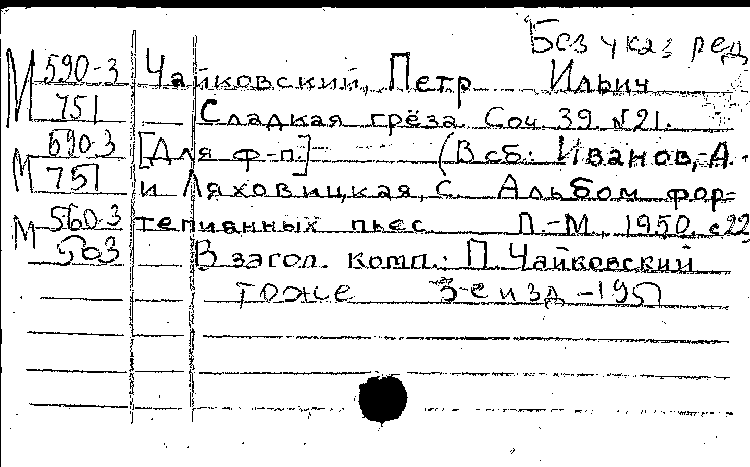 Без указ ред
М 590-3 Чайковский, Петр Ильич
751 Сладкая грёза. Соч. 39. №21.
М 590-3 [Для ф-п.] (В сб: Иванов, А.
751 и Ляховицкая, С. Альбом фор-
М 560-3 тепианных пьес Л.-М., 1950. с22
503 В загол. комп.: П. Чайковский
тоже 3-е изд -1951